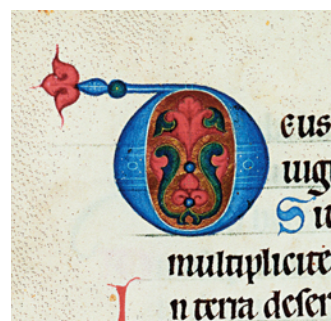 Deus
uigi
Sit
multiplicite
In terra deser